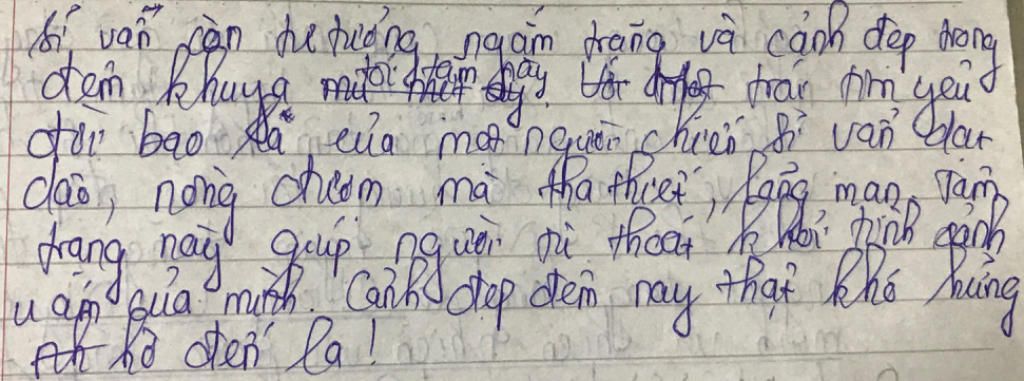 sĩ vẫn còn thi hướng, ngắm trăng và cảnh đẹp trong
đêm khuya tối tăm này. Với trái tim yêu
đời bao la của một người chiến sĩ vẫn dạt
dào, nồng đượm mà tha thiết, lãng mạn. Tâm
trạng này giúp người tù thoát khỏi tình cảnh
u ám của mình. Cảnh đẹp đêm nay thật khó hững
hờ đến lạ!